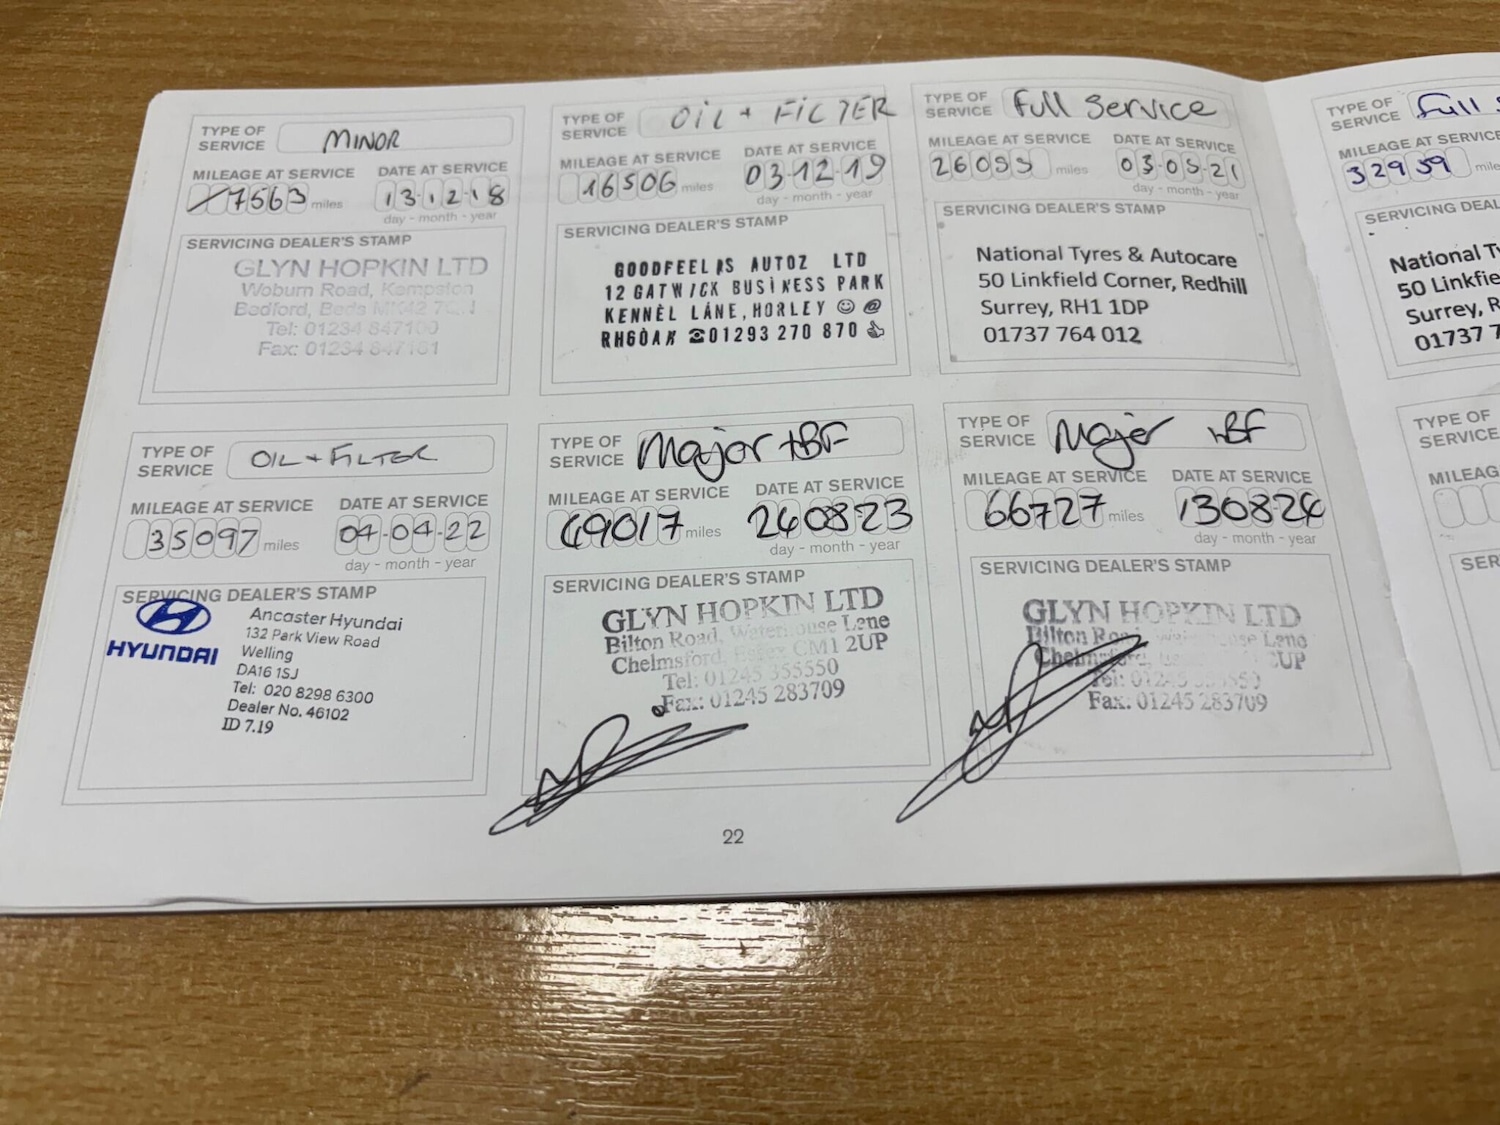 TYPE OF SERVICE MINOR
MILEAGE AT SERVICE DATE AT SERVICE
7563 miles 13-12-18
day - month - year
SERVICING DEALER'S STAMP
GLYN HOPKIN LTD
Woburn Road, Kempston
Bedford, Beds MK42
Tel: 01234 847100
Fax: 01234 847161
TYPE OF SERVICE OIL + FILTER
MILEAGE AT SERVICE DATE AT SERVICE
16506 miles 03-12-19
day - month - year
SERVICING DEALER'S STAMP
GOODFEEL AS AUTOZ LTD
12 GATWICK BUSINESS PARK
KENNEL LANE, HORLEY ☺ @
RH60AX ☎01293 270 870 👍
TYPE OF SERVICE Full Service
MILEAGE AT SERVICE DATE AT SERVICE
26055 miles 03-05-21
day - month - year
SERVICING DEALER'S STAMP
National Tyres & Autocare
50 Linkfield Corner, Redhill
Surrey, RH1 1DP
01737 764 012
TYPE OF SERVICE Full
MILEAGE AT SERVICE
32959
SERVICING
National
50
Surrey,
01737
TYPE OF SERVICE OIL + FILTER
MILEAGE AT SERVICE DATE AT SERVICE
35097 miles 04-04-22
day - month - year
SERVICING DEALER'S STAMP
HYUNDAI
Ancaster Hyundai
132 Park View Road
Welling
DA16 1SJ
Tel: 020 8298 6300
Dealer No. 46102
ID 7.19
TYPE OF SERVICE Major +BF
MILEAGE AT SERVICE DATE AT SERVICE
49017 miles 240823
day - month - year
SERVICING DEALER'S STAMP
GLYN HOPKIN LTD
Bilton Road, Waterhouse Lane
Chelmsford, Essex CM1 2UP
Tel: 01245 355550
Fax: 01245 283709
TYPE OF SERVICE Major +BF
MILEAGE AT SERVICE DATE AT SERVICE
66727 miles 130824
day - month - year
SERVICING DEALER'S STAMP
GLYN HOPKIN LTD
Bilton Road, Waterhouse Lane
Chelmsford, 2UP
Tel: 01245 355550
Fax: 01245 283709
TYPE OF SERVICE
MILEAGE
22